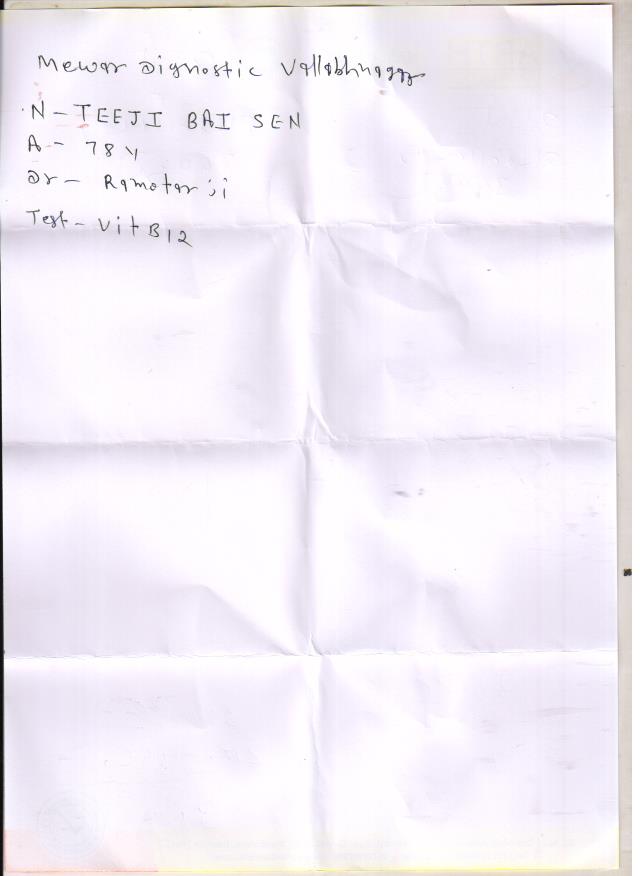 Mewar Dignostic Vallabhnagar
N - TEEJI BAI SEN
A - 78 Y
Dr - Ramotar ji
Test - Vit B12